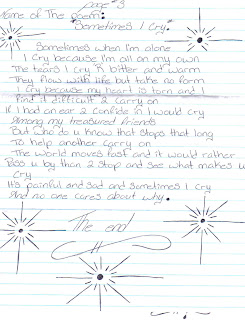 page #3
Name of The poem:
"Sometimes I Cry"
Sometimes when I'm alone
I Cry because I'm all on my own
The tears I cry R bitter and warm
They flow with life but take no form
I Cry because my heart is torn and I
find it difficult 2 carry on
If I had an ear 2 confide in I would cry
Among my treasured friends
But who do u know that stops that long
To help another carry on
The world moves fast and it would rather
Pass u by than 2 stop and see what makes u
Cry
It's painful and sad and sometimes I cry
And no one cares about why.
The end